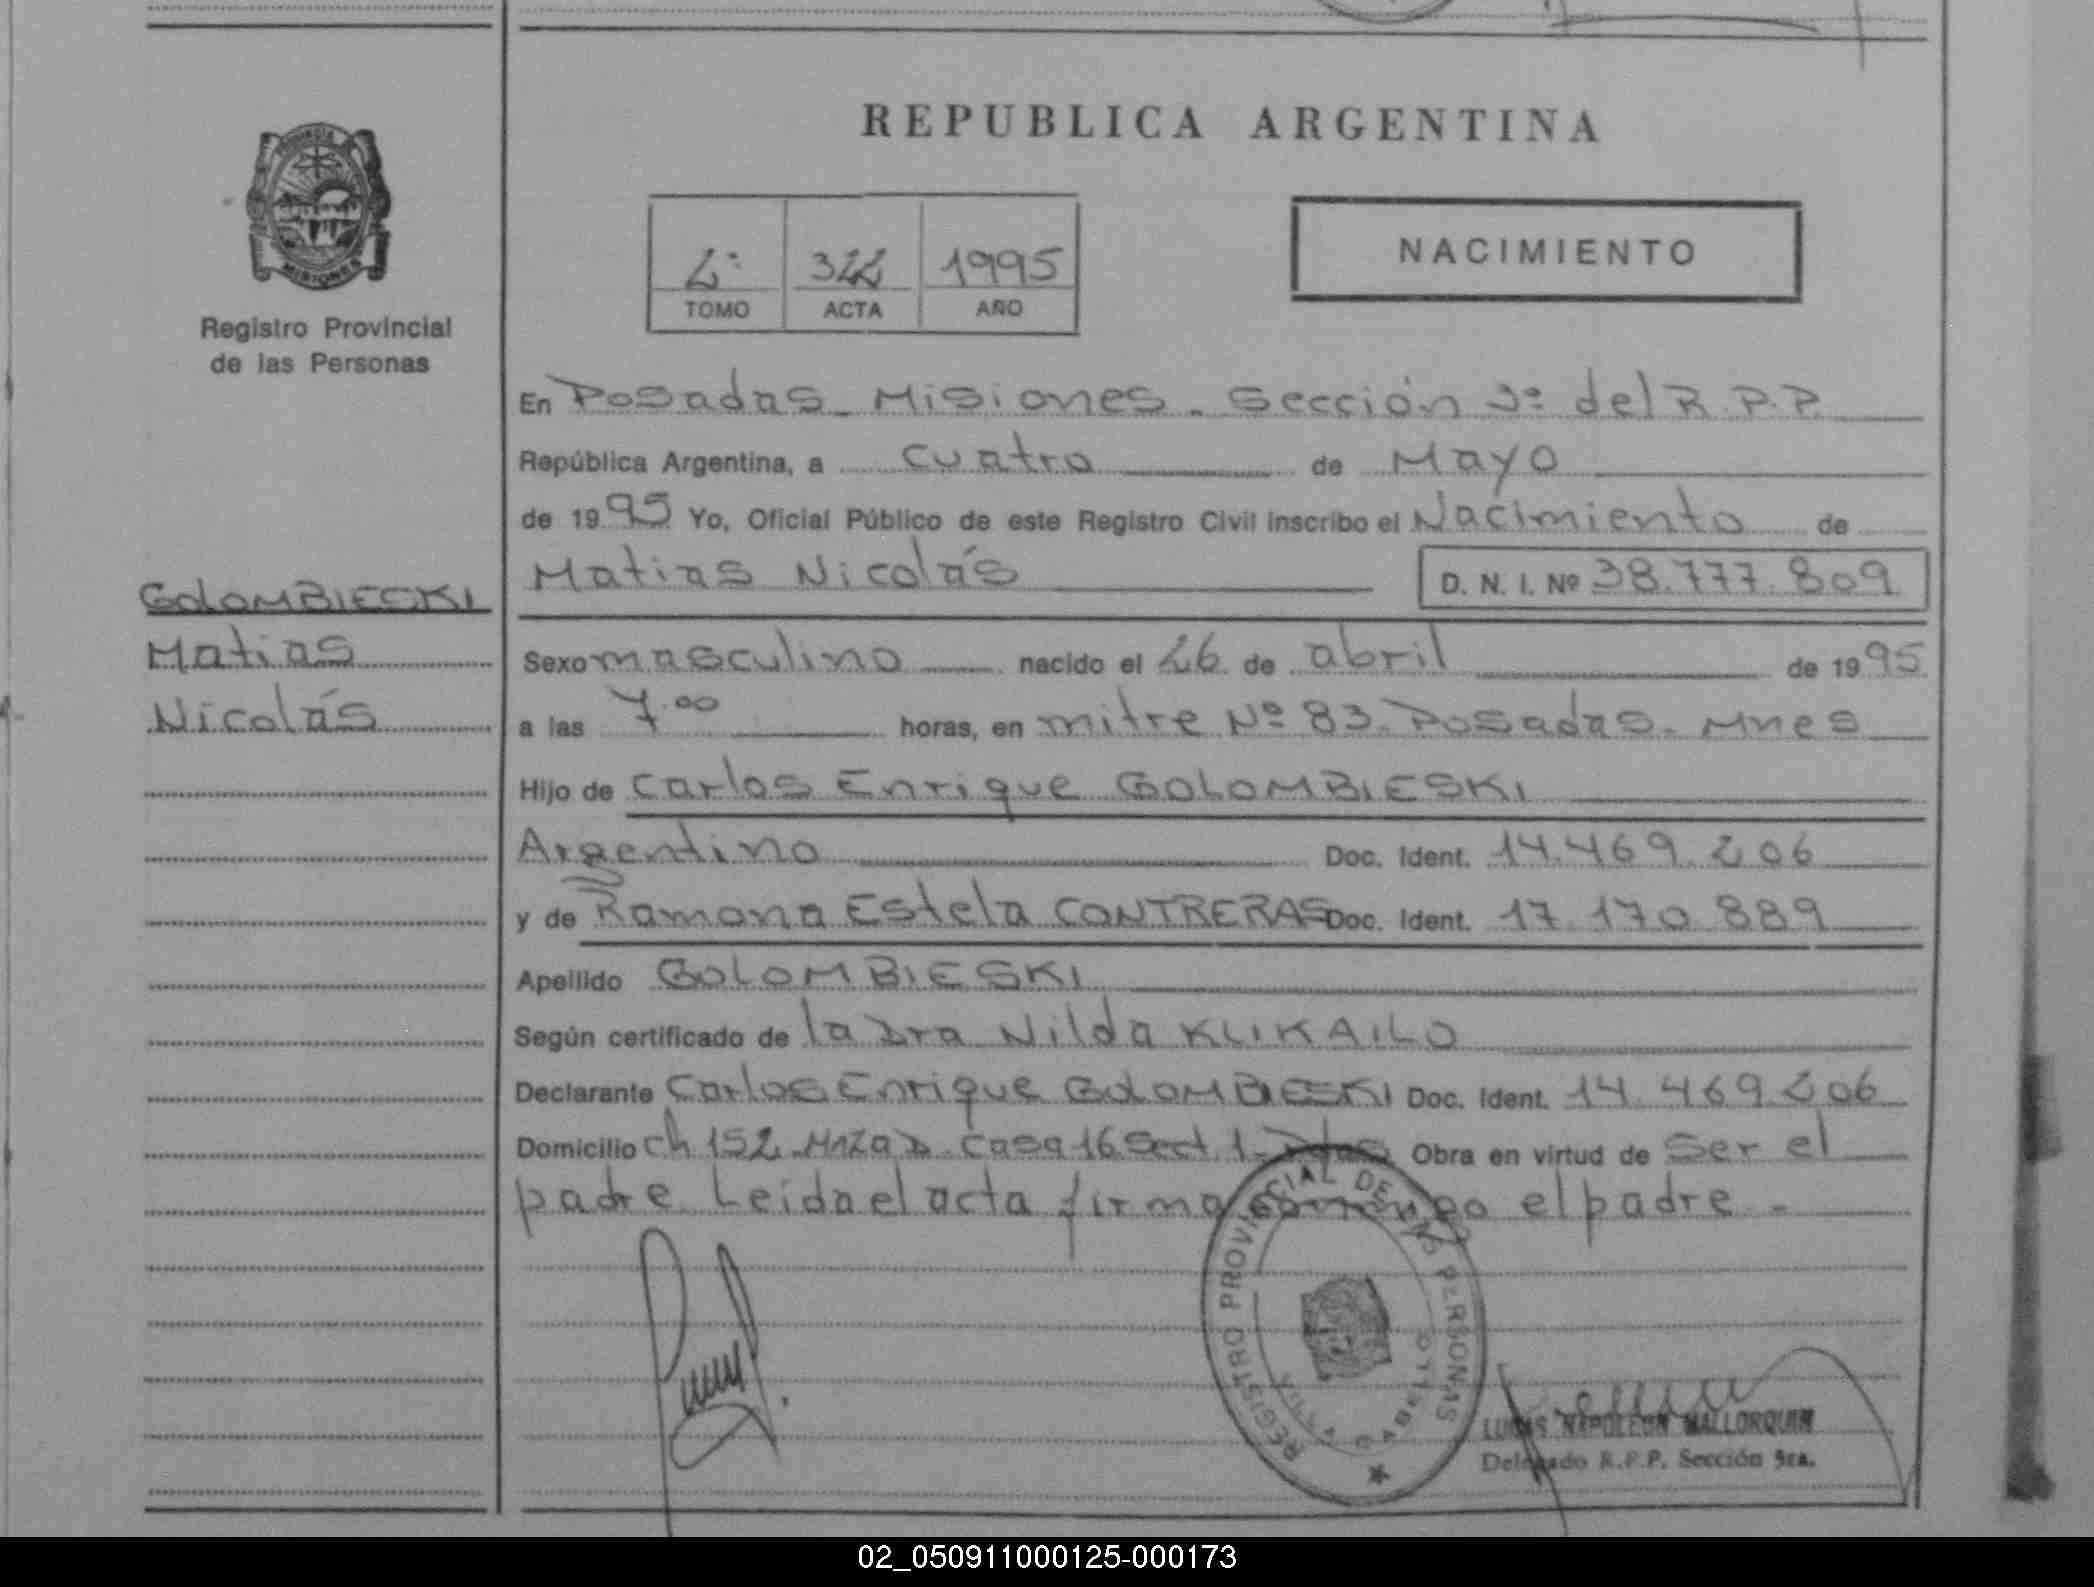 REPUBLICA ARGENTINA
PROVINCIA
MISIONES
Registro Provincial
de las Personas
2º 322 1995
TOMO ACTA AÑO
NACIMIENTO
En Posadas - Misiones - Sección 3º del R.P.P.
República Argentina, a cuatro de Mayo
de 1995 Yo, Oficial Público de este Registro Civil inscribo el Nacimiento de
Matias Nicolás D. N. I. Nº 38.777.809
GOLOMBIESKI
Matias
Nicolás
Sexo masculino nacido el 26 de abril de 1995
a las 7.00 horas, en mitre Nº 83. Posadas - Mnes
Hijo de Carlos Enrique GOLOMBIESKI
Argentino Doc. Ident. 14.469.206
y de Ramona Estela CONTRERAS Doc. Ident. 17.170.889
Apellido GOLOMBIESKI
Según certificado de la Dra Nilda KLIKAILO
Declarante Carlos Enrique GOLOMBIESKI Doc. Ident. 14.469.206
Domicilio ch 152 - Mnza D - Casa 16 Sect 1 - Pdas Obra en virtud de Ser el
padre. Leida el acta firma conmigo el padre. -
REGISTRO PROVINCIAL DE LAS PERSONAS
LUCAS NAPOLEON MALLORQUIN
Delegado R.P.P. Sección 3ra.
02_050911000125-000173